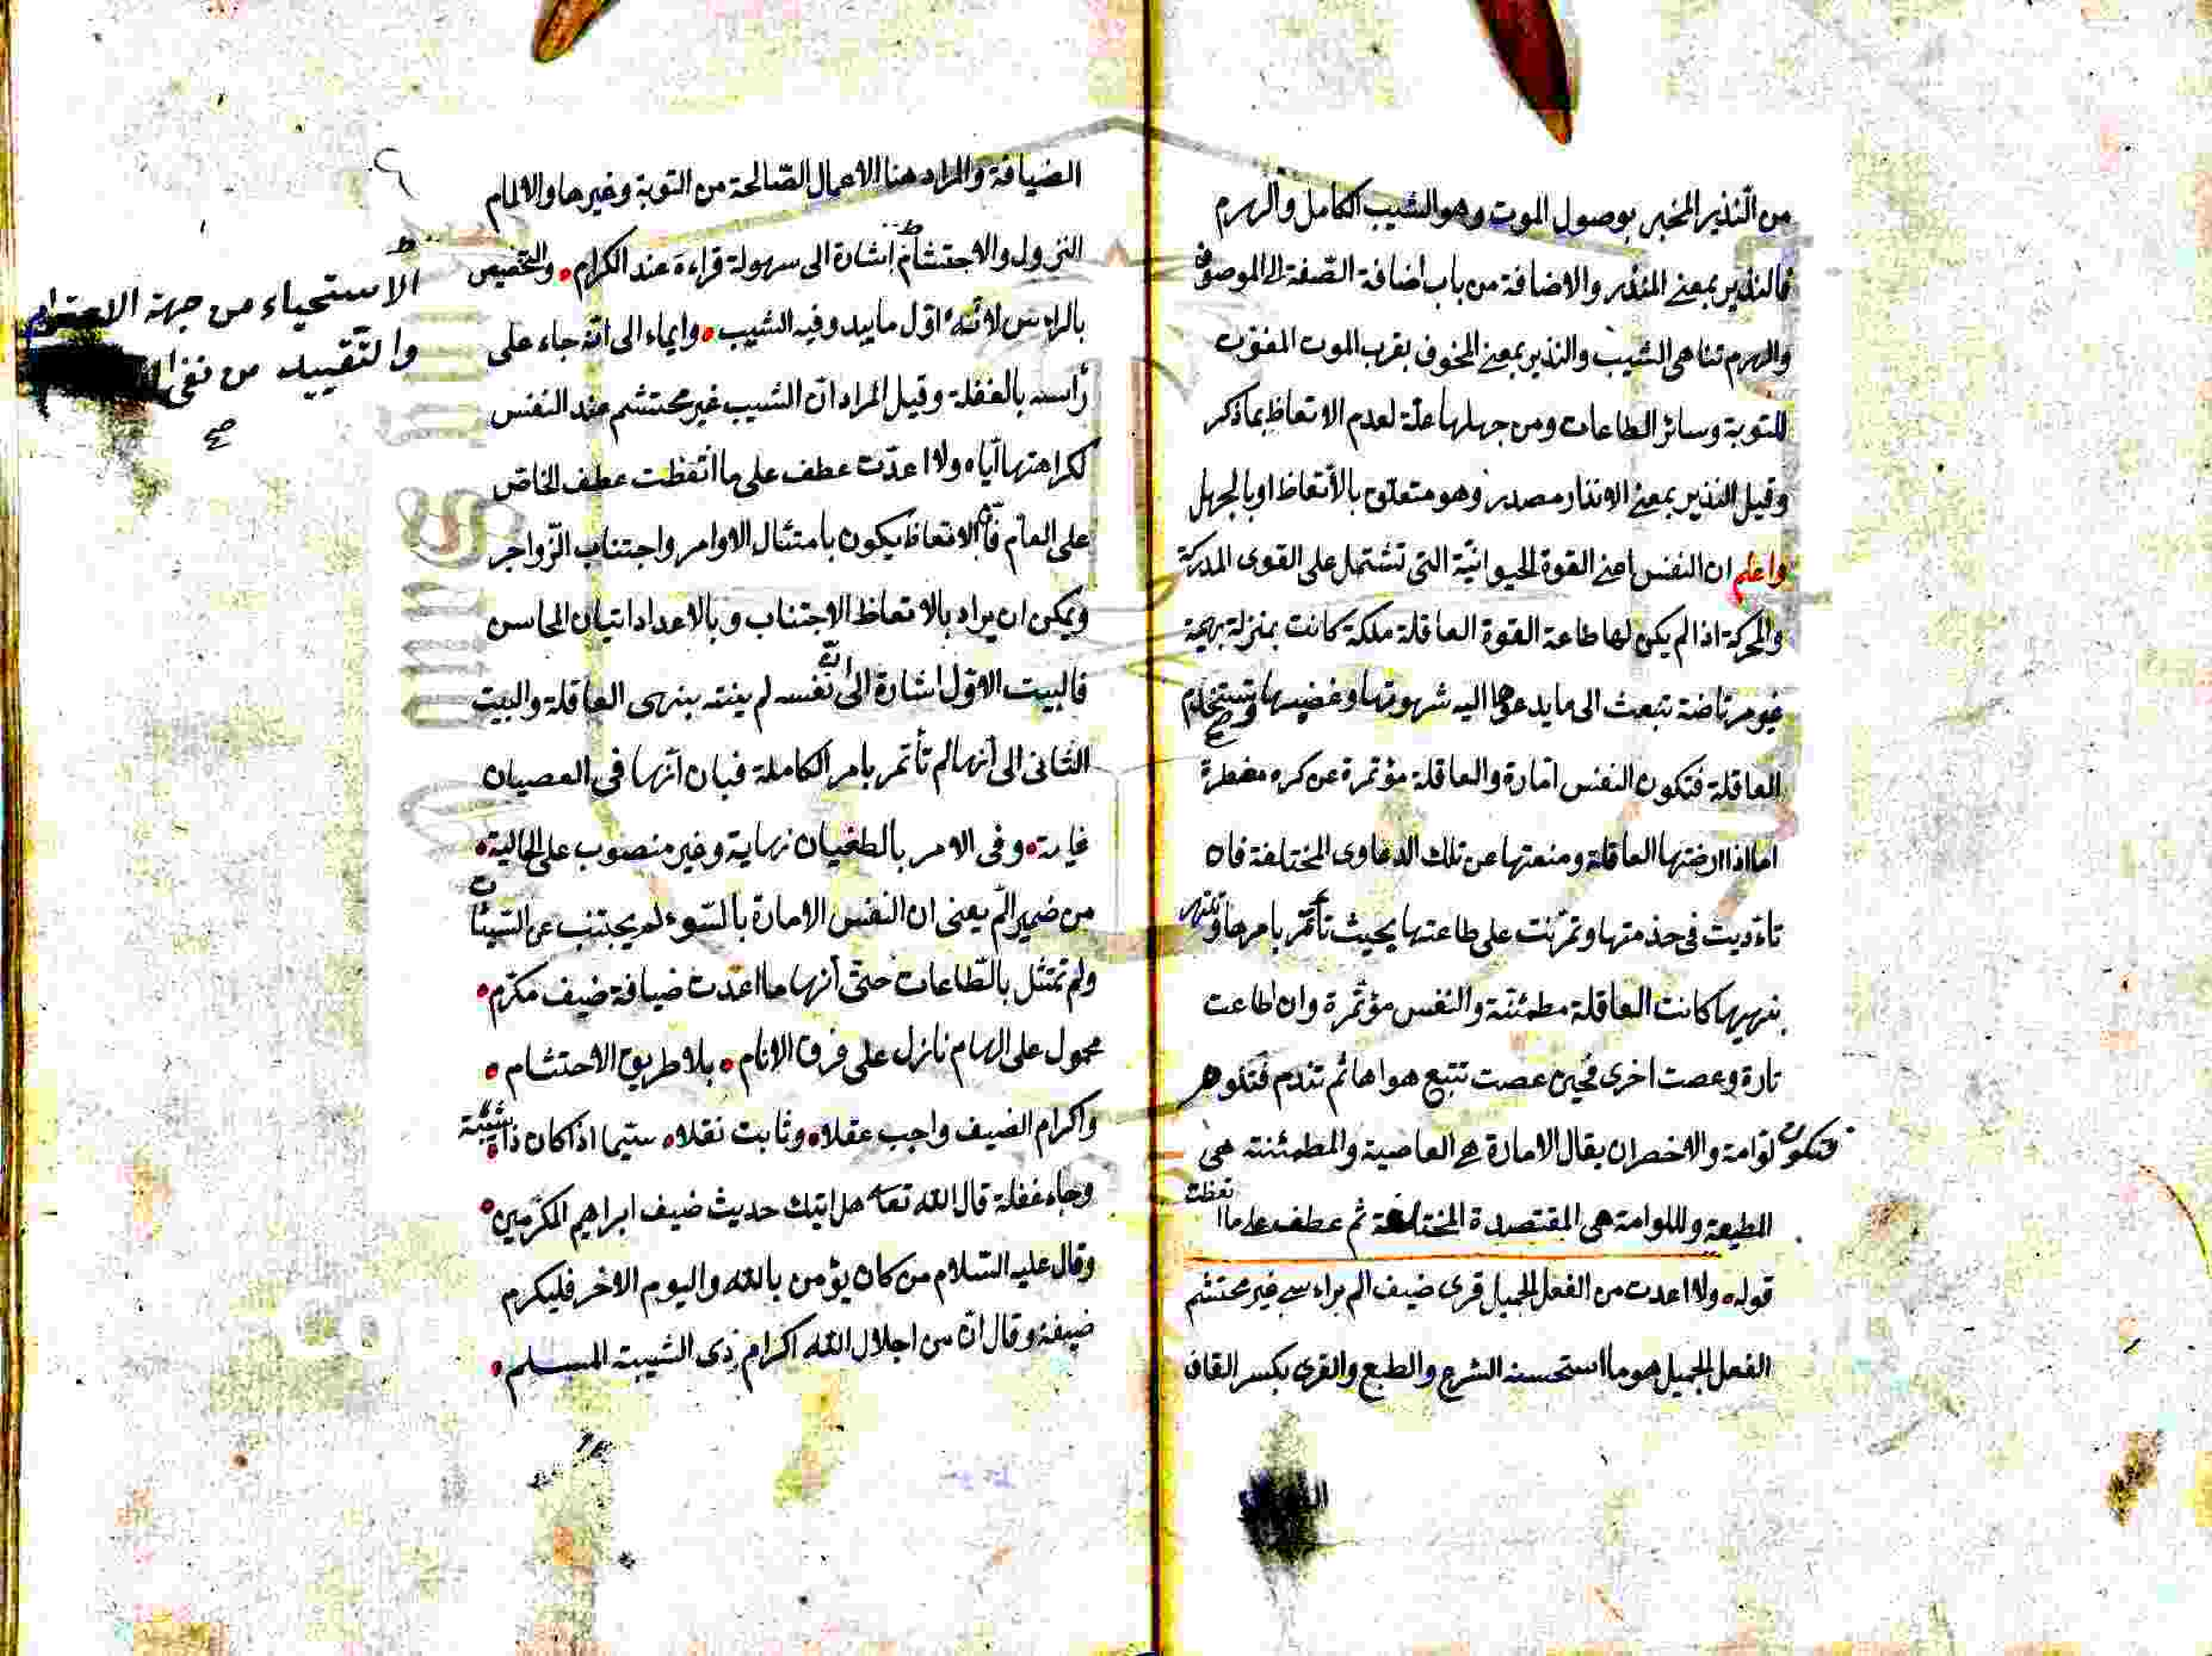 من النذير المخبر بوصول الموت وهو الشيب الكامل والهرم
فالنذير بمعنى المنذر والاضافة من باب اضافة الصفة الى الموصوف
والهرم تناهى الشيب والنذير بمعنى المخوف بقرب الموت المفوت
للتوبة وسائر الطاعات ومن جهلها علة لعدم الاتعاظ بما ذكر
وقيل النذير بمعنى الانذار مصدر وهو متعلق بالاتعاظ او بالجهل
واعلم ان النفس اعنى القوة الحيوانية التى تشتمل على القوى المدركة
والمحركة اذا لم يكن لها طاعة القوة العاقلة ملكة كانت بمنزلة بهيمة
غير مرتاضة تبعث الى ما يدعوها اليه شهوتها وغضبها وتستخدم
العاقلة فتكون النفس امارة والعاقلة مؤتمرة عن كره مضطرة
اما اذا ارضتها العاقلة ومنعتها عن تلك الدعاوى المختلفة فان
تاءدبت فى خدمتها وتمرنت على طاعتها بحيث تأتمر بامرها وتنتهى
بنهيها كانت العاقلة مطمئنة والنفس مؤتمرة وان اطاعت
تارة وعصت اخرى فحين عصت تتبع هواها ثم تندم فتلوم
فتكون لوامة والاخصر ان يقال الامارة هى العاصية والمطمئنة هى
المطيعة واللوامة هى المقتصدة المختلطة ثم عطف على ما اتعظت
قوله ولا اعدت من الفعل الجميل قرى ضيف الم براءسى غير محتشم
الفعل الجميل هو ما استحسنه الشرع والطبع والقرى بكسر القاف
الضيافة والمراد هنا الاعمال الصالحة من التوبة وغيرها والالمام
النزول والاحتشام اشارة الى سهولة قراءة عند الكرام والتخصيص
بالراءس لانه اول ما يبد وفيه الشيب وايماء الى انه جاء على
رأسه بالغفلة وقيل المراد ان الشيب غير محتشم عند النفس
لكراهتها اياه ولا اعدت عطف على ما اتعظت عطف الخاص
على العام فان الاتعاظ يكون بامتثال الاوامر واجتناب الزواجر
ويمكن ان يراد بالاتعاظ الاجتناب وبالاعداد اتيان المحاسن
فالبيت الاول اشارة الى ان نفسه لم ينته بنهى العاقلة والبيت
الثانى الى أنها لم تأتمر بامر الكاملة فبان أنها فى العصيان
غاية وفى الامر بالطغيان نهاية وغير منصوب على الحالية
من ضمير الم يعنى ان النفس الامارة بالسوء لم يجتنب عن السيئات
ولم تمتثل بالطاعات حتى أنها ما اعدت ضيافة ضيف مكرم
محمول على الهام نازل على فرق الانام بلا طريق الاحتشام
واكرام الضيف واجب عقلا وثابت نقلا سيما اذا كان ذا شيبة
وجاء غفلة قال الله تعا هل اتيك حديث ضيف ابراهيم المكرمين
وقال عليه السلام من كان يؤمن بالله واليوم الاخر فليكرم
ضيفه وقال ان من اجلال الله اكرام ذى الشيبة المسلم
الاستحياء من جهة الاحترام
والتقييد من نفى
صح